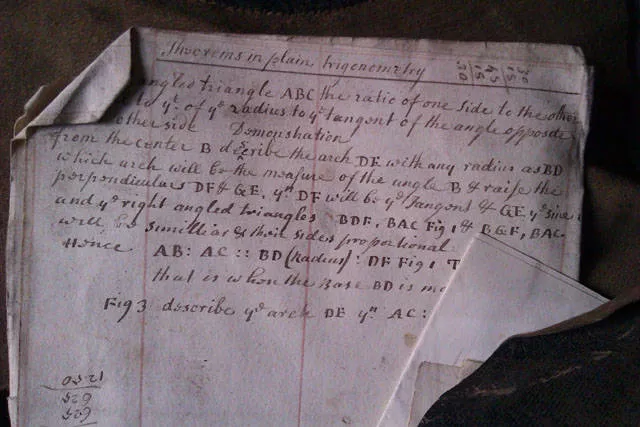 Theorems in plain trigonometry
angled triangle ABC the ratio of one side to the other
to yt. of ye radius to ye tangent of the angle opposde
other side Demonshation
from the Center B describe the arch DE with any radius as BD
which arch will be the measure of the angle B & raise the
perpendiculars DF & GE, yn DF will be ye Tangent & GE ye sine
and ye right angled triangles BDF, BAC Fig 1 & BGE, BAC
will be simillar & their sides proportional
Hence AB: AC :: BD (Radius): DF Fig 1 T
that is when the Base BD is
Fig 3 describe ye arch DE yn AC:
30
15
45
15
30